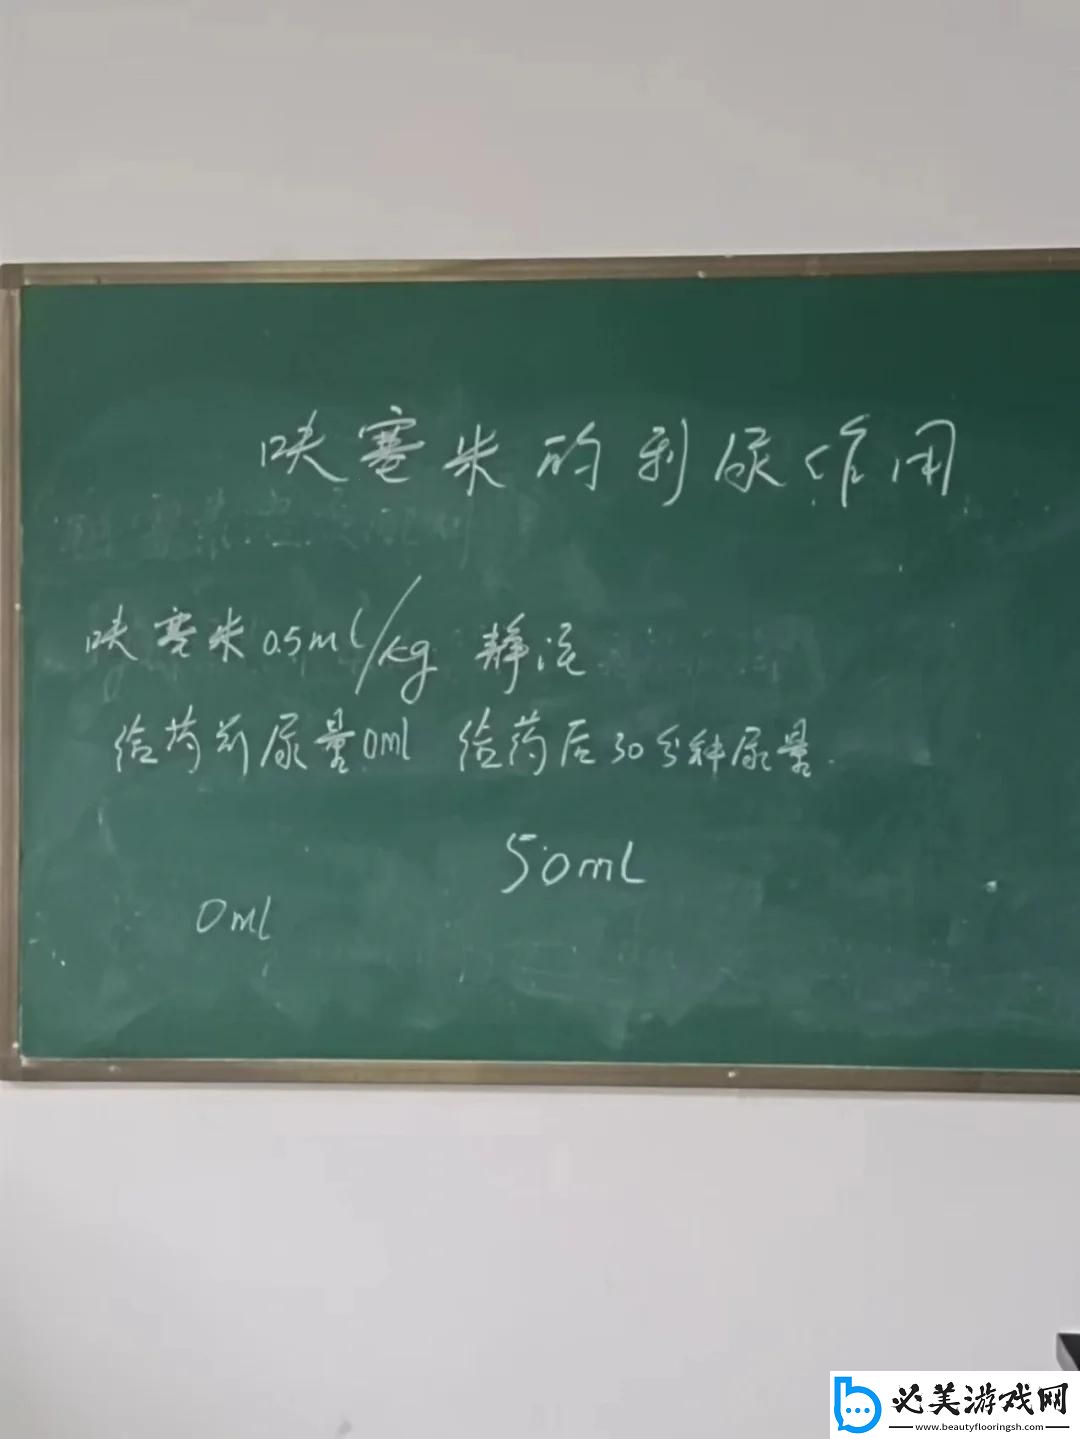 呋塞米的利尿作用
呋塞米0.5ml/kg 静注
给药前尿量0ml 给药后30分种尿量
50ml
0ml
必美游戏网
www.beautyflooringsh.com